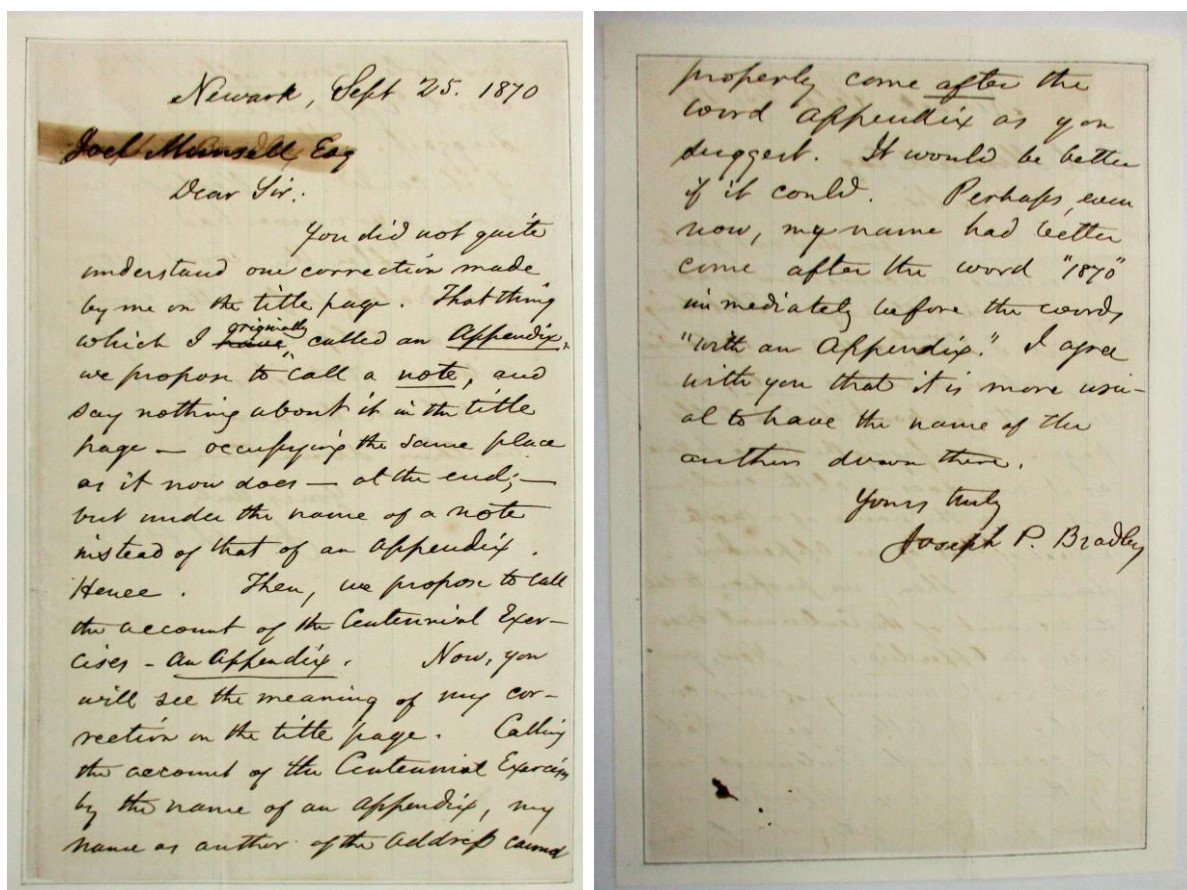 Newark, Sept 25. 1870
Joel Munsell, Esq
Dear Sir.
You did not quite
understand one correction made
by me on the title page. That thing
which I originally called an Appendix,
we propose to call a note, and
say nothing about it in the title
page — occupying the same place
as it now does — at the end; —
but under the name of a note
instead of that of an appendix.
Hence. Then, we propose to call
the account of the Centennial Exer-
cises - An Appendix. Now, you
will see the meaning of my cor-
rection on the title page. Calling
the account of the Centennial Exercises
by the name of an appendix, my
name as author of the address cannot
properly come after the
word appendix as you
suggest. It would be better
if it could. Perhaps, even
now, my name had better
come after the word "1870"
immediately before the words
"with an Appendix." I agree
with you that it is more usu-
al to have the name of the
authors down there.
Yours truly
Joseph P. Bradley